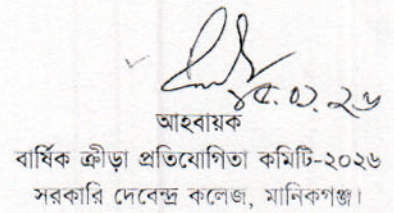 ১৫.০১.২৬
আহবায়ক
বার্ষিক ক্রীড়া প্রতিযোগিতা কমিটি-২০২৬
সরকারি দেবেন্দ্র কলেজ, মানিকগঞ্জ।